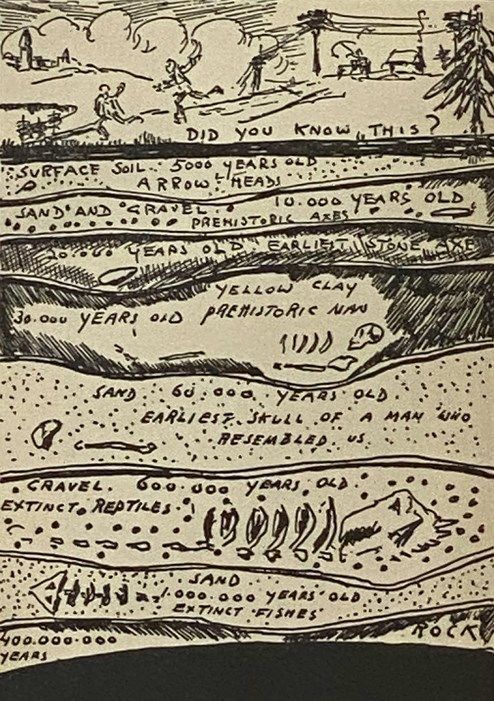 DID YOU KNOW THIS?
SURFACE SOIL. 5000 YEARS OLD
ARROW HEADS
10.000 YEARS OLD
SAND AND GRAVEL.
PREHISTORIC AXES
20.000 YEARS OLD EARLIEST STONE AXE
YELLOW CLAY
30.000 YEARS OLD PREHISTORIC MAN
SAND 60.000 YEARS OLD.
EARLIEST SKULL OF A MAN WHO
RESEMBLED US.
GRAVEL. 600.000 YEARS OLD.
EXTINCT REPTILES.
SAND
1.000.000 YEARS OLD
EXTINCT FISHES
ROCK
400.000.000
YEARS